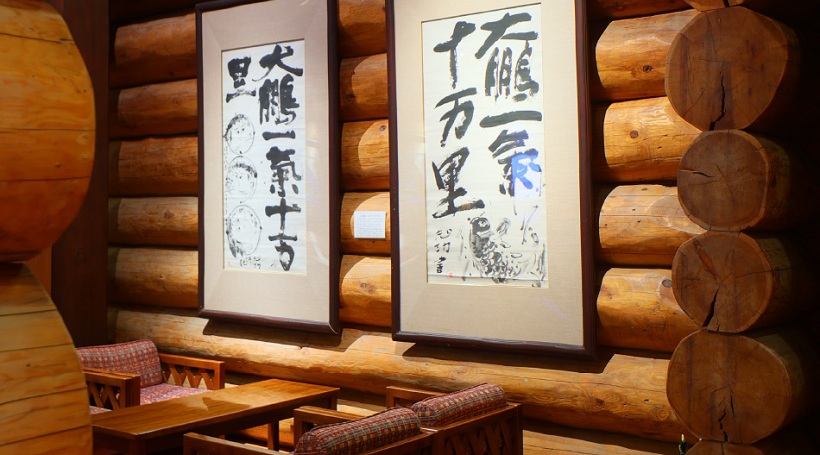 大鵬一氣十万
里
大鵬一氣
十万里
書